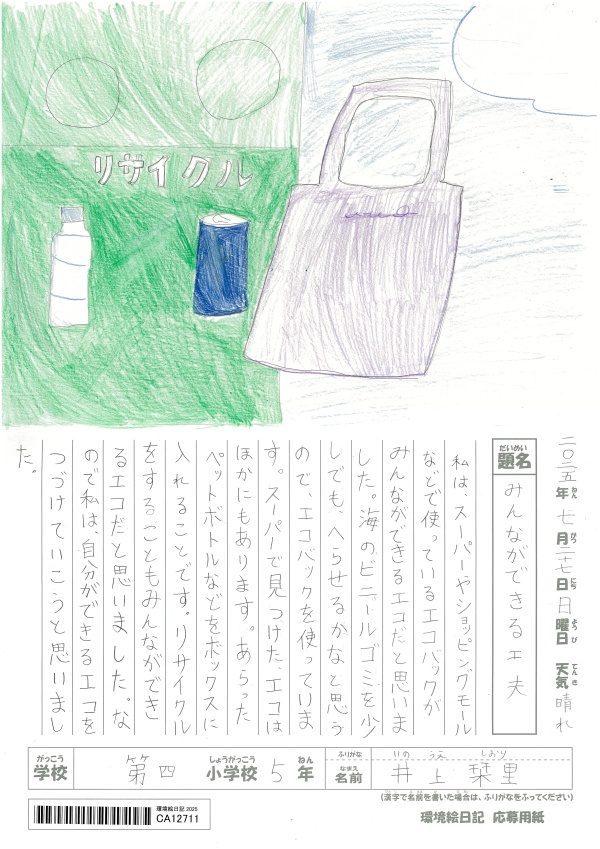 リサイクル
二〇二五年七月二十七日日曜日 天気晴れ
ねん がつ にち ようび てんき
だいめい
題名 みんなができる工夫
私は、スーパーやショッピングモール
などで使っているエコバックが
みんなができるエコだと思いま
した。海のビニールゴミを少
しでも、へらせるかなと思う
ので、エコバックを使っていま
す。スーパーで見つけた、エコは
ほかにもあります。あらった
ペットボトルなどをボックスに
入れることです。リサイクル
をすることもみんなができ
るエコだと思いました。な
ので私は、自分ができるエコを
つづけていこうと思いまし
た。
がっこう しょうがっこう ねん
学校 第四 小学校 5年
ふりがな いのうえ しおり
なまえ
名前 井上栞里
(漢字で名前を書いた場合は、ふりがなをふってください)
環境絵日記 応募用紙
環境絵日記 2025
CA12711